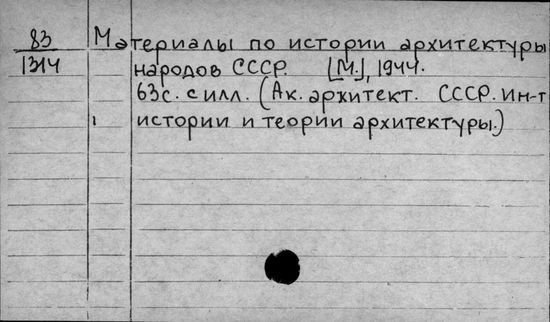 83 Материалы по истории архитектуры
1314 народов СССР. [М.], 1944.
63с. с илл. (Ак. архитект. СССР. Ин-т
истории и теории архитектуры.)